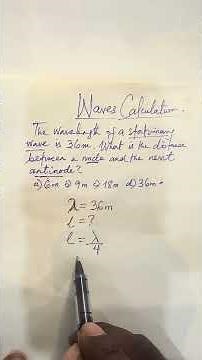 Waves Calculation.
The wavelength of a stationary
wave is 36m. What is the distance
between a node and the next
antinode?
a) 6m b) 9m c) 18m d) 36m
λ = 36m
l = ?
l = λ/4